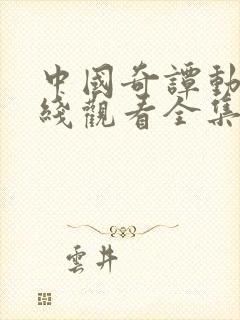 中國奇譚動
綫觀看全集
雲井